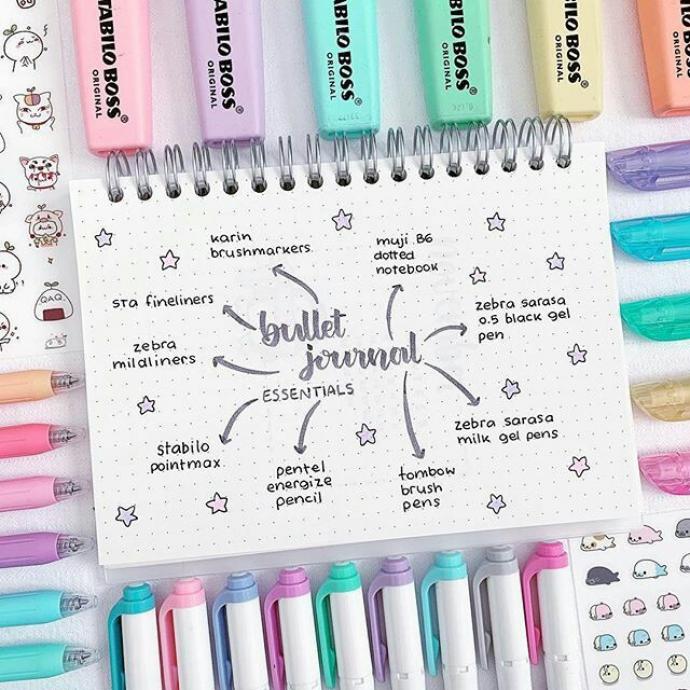 STABILO BOSS
ORIGINAL
STABILO BOSS
ORIGINAL
STABILO BOSS
ORIGINAL
STABILO BOSS
ORIGINAL
STABILO BOSS
ORIGINAL
STABILO BOSS
ORIGINAL
QAQ
karin
brushmarkers
muji B6
dotted
notebook
sta fineliners
zebra sarasa
0.5 black gel
pen
zebra
mildliners
bullet
journal
ESSENTIALS
stabilo
pointmax
pentel
energize
pencil
tombow
brush
pens
zebra sarasa
milk gel pens